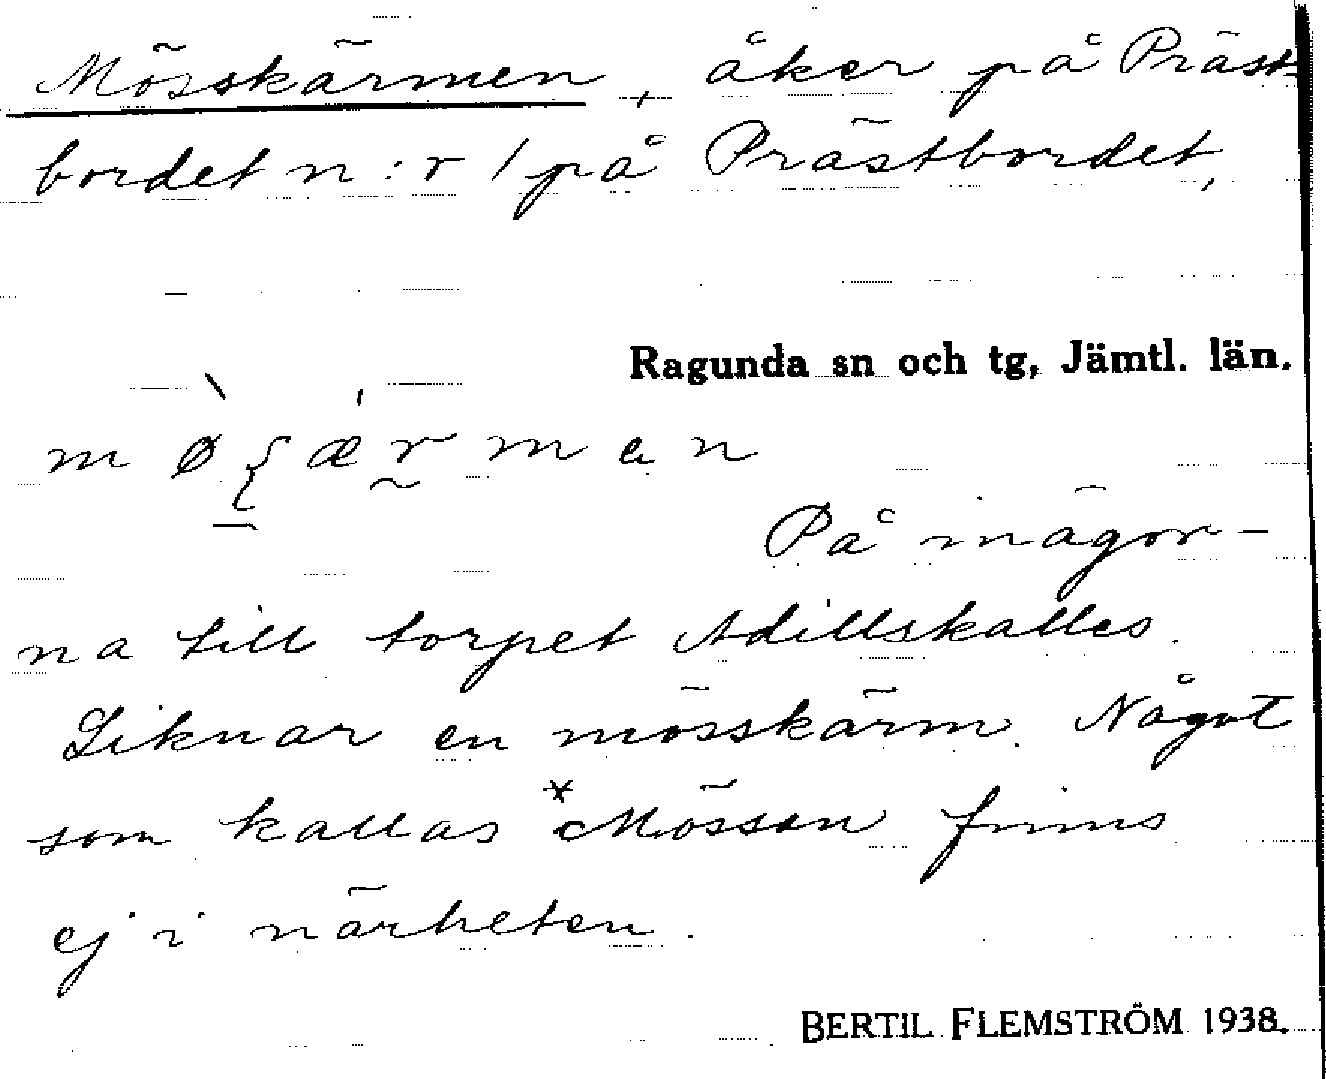 Mösskärmen, åker på Präst-
bordet n:r 1 på Prästbordet,
Ragunda sn och tg, Jämtl. län.
På inägor-
na till torpet Adillskalles.
Liknar en mösskärm. Något
som kallas *Mössan finns
ej i närheten.
BERTIL FLEMSTRÖM 1938.